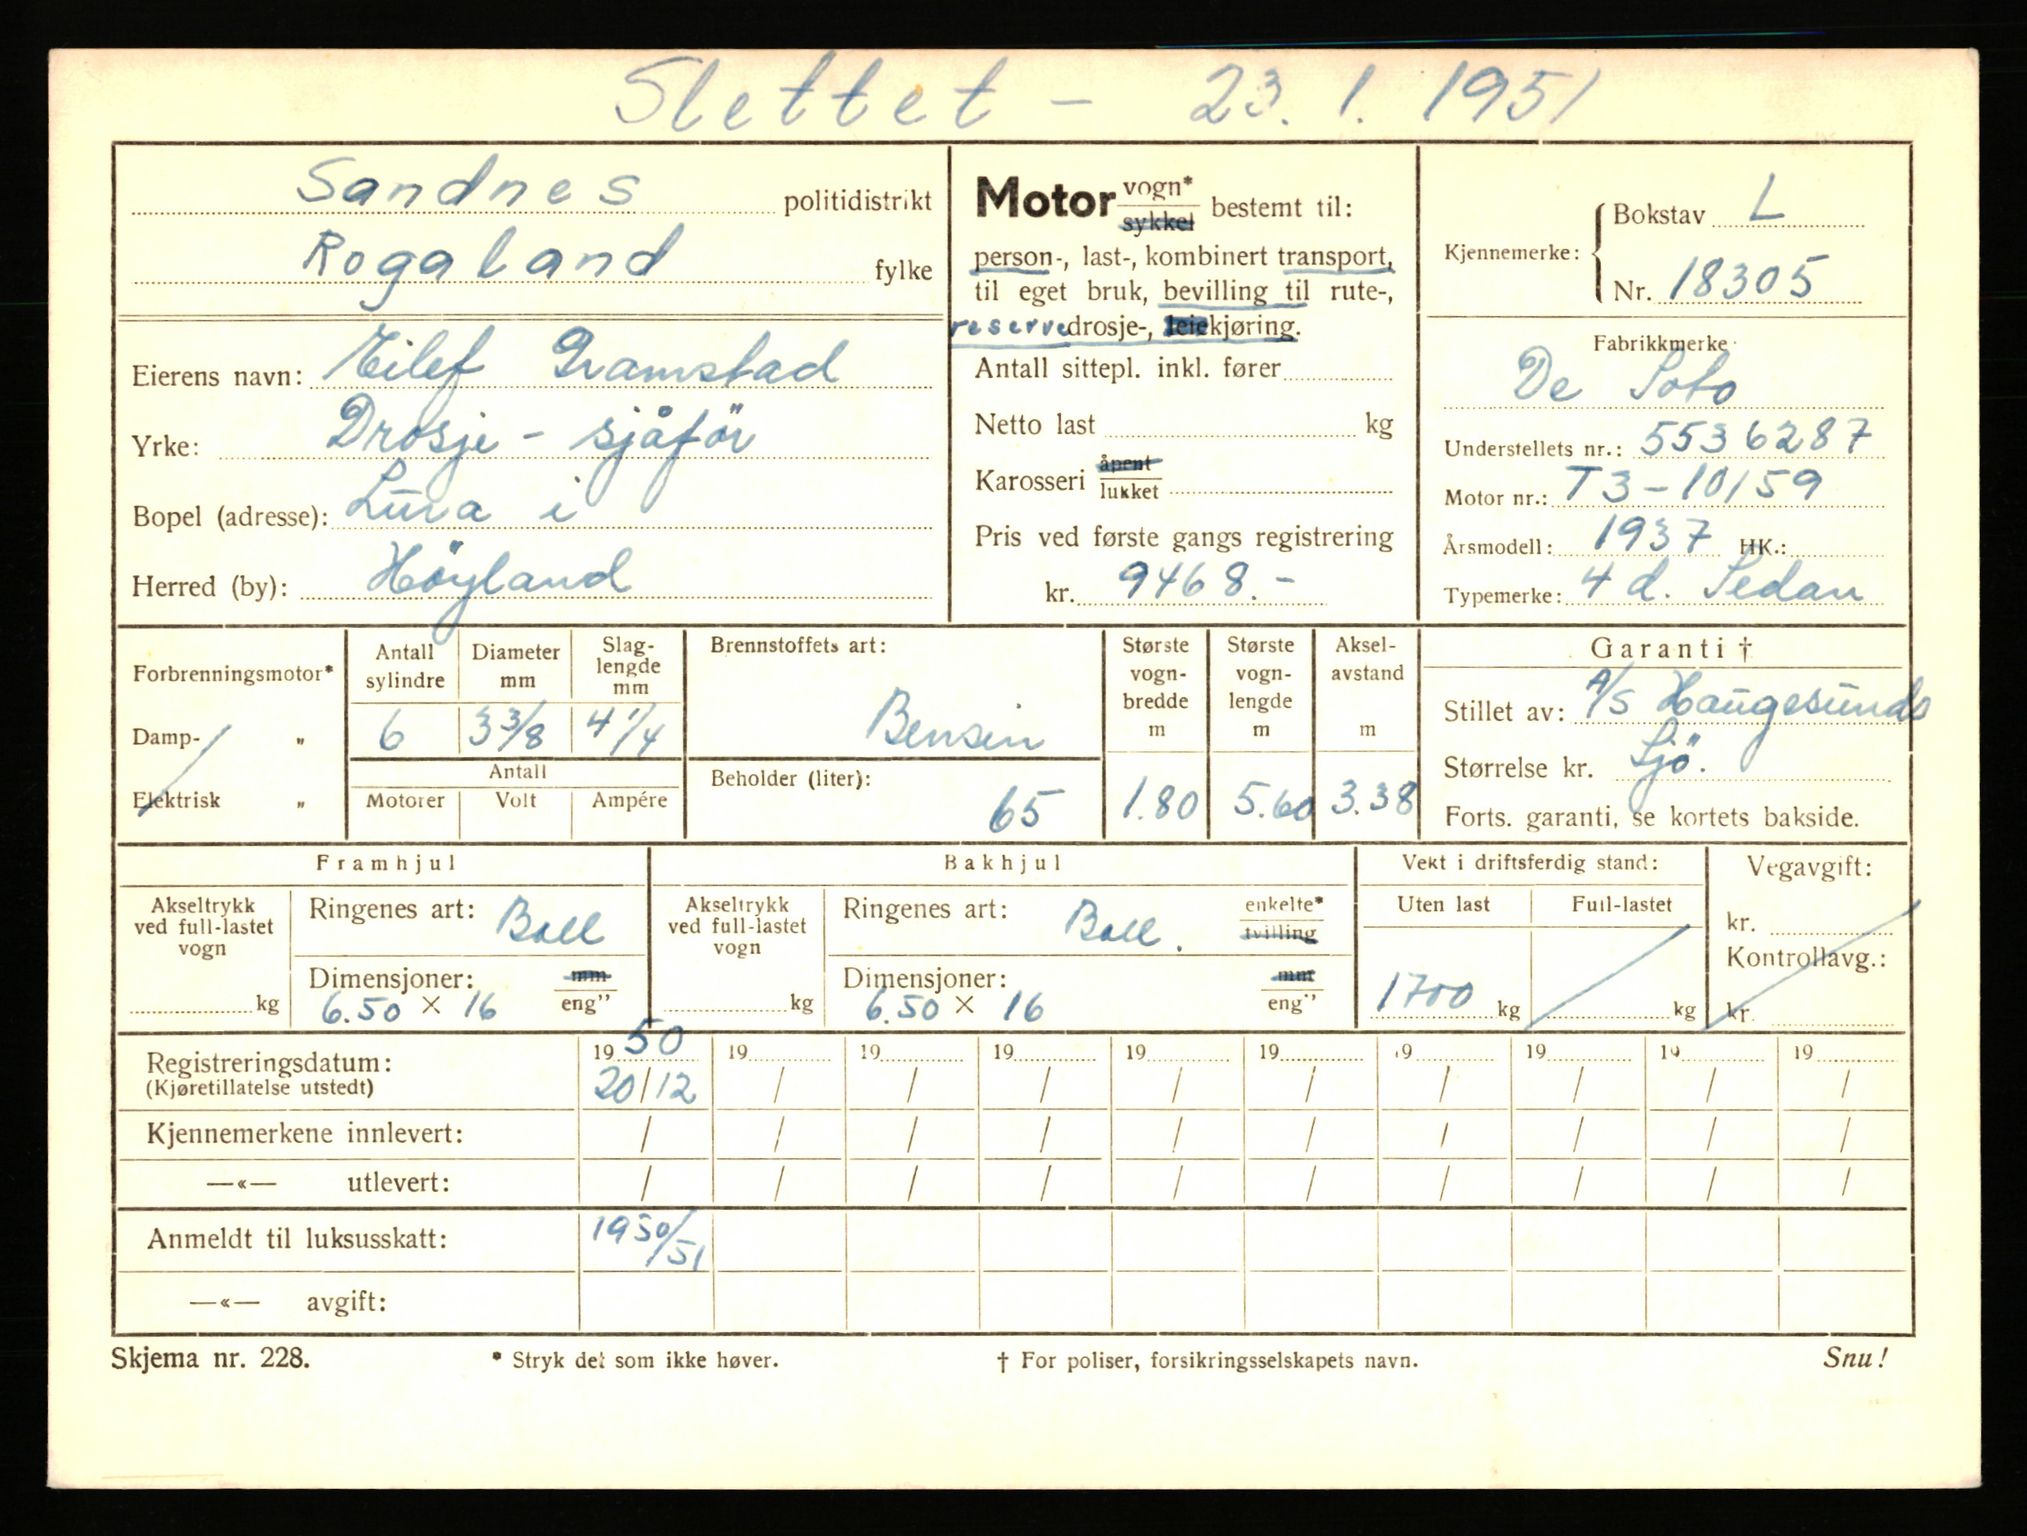 Slettet - 23. 1. 1951
Sandnes politidistrikt
Rogaland fylke
Eierens navn: Eilef Gramstad
Yrke: Drosje - sjåför
Bopel (adresse): Lura i
Herred (by): Höyland
Motor vogn* sykkel bestemt til:
person-, last-, kombinert transport,
til eget bruk, bevilling til rute-,
reserve drosje-, leiekjøring.
Antall sittepl. inkl. fører
Netto last kg
Karosseri åpent lukket
Pris ved første gangs registrering
kr. 9468.-
Kjennemerke: { Bokstav L
Nr. 18305
Fabrikkmerke
De Soto
Understellets nr.: 5536287
Motor nr.: T3-10159
Årsmodell: 1937 HK.:
Typemerke: 4 d. Sedan
Forbrenningsmotor*
Damp- „
Elektrisk „
Antall sylindre Diameter mm Slaglengde mm
6 3 3/8 4 1/4
Antall
Motorer Volt Ampére
Brennstoffets art:
Bensin
Beholder (liter):
65
Største vogn-bredde m
1.80
Største vogn-lengde m
5.60
Aksel-avstand m
3.38
Garanti †
Stillet av: A/S Haugesunds
Størrelse kr. Sjö.
Forts. garanti, se kortets bakside.
Framhjul
Akseltrykk
ved full-lastet
vogn
kg
Ringenes art: Ball
Dimensjoner: mm
6.50 × 16 eng"
Bakhjul
Akseltrykk
ved full-lastet
vogn
kg
Ringenes art: Ball. enkelte* tvilling
Dimensjoner: mm
6.50 × 16 eng"
Vekt i driftsferdig stand:
Uten last Full-lastet
1700 kg kg
Vegavgift:
kr.
Kontrollavg.:
kr.
Registreringsdatum: 1950 19 19 19 19 19 19 19 19 19
(Kjøretillatelse utstedt) 20/12 / / / / / / / / /
Kjennemerkene innlevert: / / / / / / / / / /
—«— utlevert: / / / / / / / / / /
Anmeldt til luksusskatt: 1950/51
—«— avgift:
Skjema nr. 228. * Stryk det som ikke høver. † For poliser, forsikringsselskapets navn. Snu!